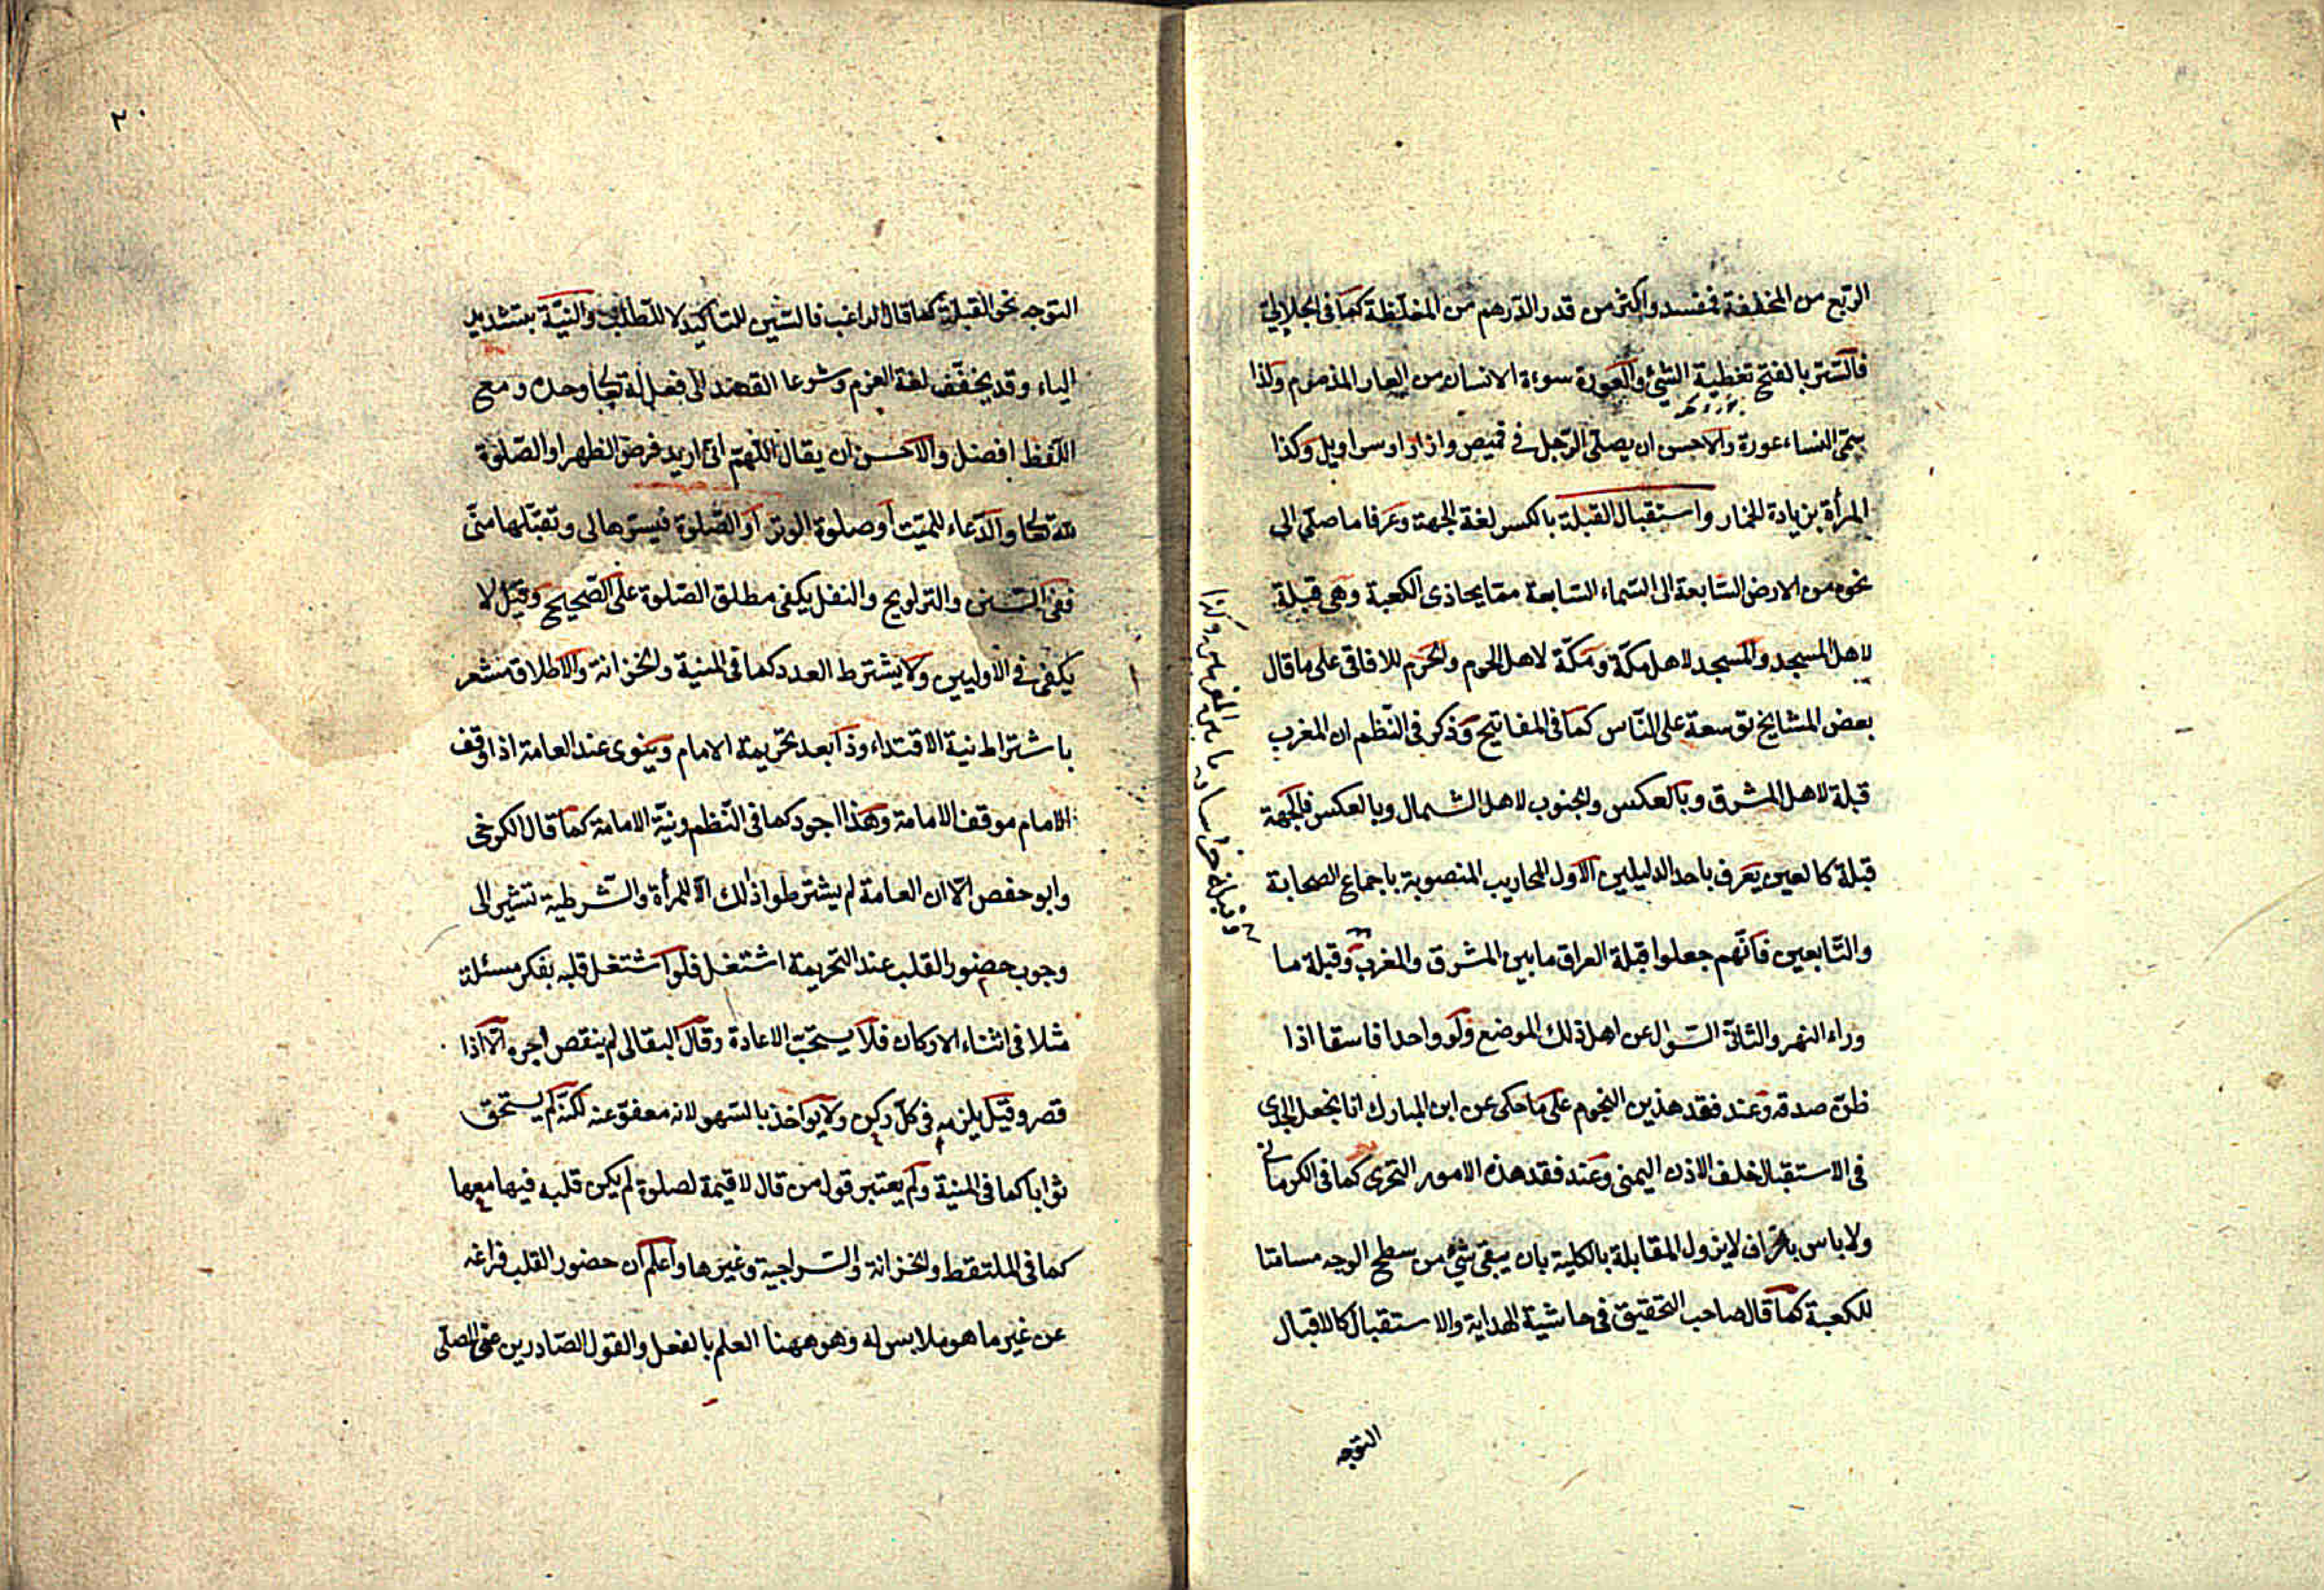 الربع من المخففة مفسد واكثر من قدر الدرهم من المغلظة كما فى الجلالى
فالستر بالفتح تغطية الشئ والعورة سوءة الانسان من العار المذموم ولذا
سمى النساء عورة والاحسن ان يصلى الرجل فى قميص وازار او سراويل وكذا
المرأة بزيادة الخمار واستقبال القبلة بالكسر لغة الجهة وعرفا ما صلى الى
نحوه من الارض السابعة الى السماء السابعة مما يحاذى الكعبة وهى قبلة
لاهل المسجد والمسجد لاهل مكة ومكة لاهل الحرم والحرم للافاقى على ما قال
بعض المشايخ توسعة على الناس كما فى المفاتيح وذكر فى النظم ان المغرب
قبلة لاهل المشرق وبالعكس والجنوب لاهل الشمال وبالعكس فالجهة
قبلة كالعين يعرف باحد الدليلين الاول المحاريب المنصوبة باجماع الصحابة
والتابعين فانهم جعلوا قبلة العراق ما بين المشرق والمغرب وقبلة ما
وراء النهر والثانى السؤال عن اهل ذلك الموضع ولو واحدا فاسقا اذا
ظن صدقه وعند فقد هذين النجوم على ما حكى عن ابن المبارك انا نجعل الجدى
فى الاستقبال خلف الاذن اليمنى وعند فقد هذه الامور التحرى كما فى الكرمانى
ولا باس بانحراف لا يزول المقابلة بالكلية بان يبقى شئ من سطح الوجه مسامتا
للكعبة كما قال صاحب التحقيق فى حاشية الهداية والاستقبال كالاقبال
التوجه
٢٠
التوجه نحو القبلة كما قال الراغب فالسين للتأكيد لا للطلب والنية بتشديد
الياء وقد يخفف لغة العزم وشرعا القصد الى فعل لله تعالى وحده ومع
اللفظ افضل والاحسن ان يقال اللهم انى اريد فرض الظهر او الصلوة
لله تعالى والدعاء للميت او صلوة الوتر او الصلوة فيسرها لى وتقبلها منى
ففى السنن والتراويح والنفل يكفى مطلق الصلوة على الصحيح وقيل لا
يكفى فى الاوليين ولا يشترط العدد كما فى المنية والخزانة والاطلاق مشعر
باشتراط نية الاقتداء وذا بعد تحريمة الامام وينوى عند العامة اذا وقف
الامام موقف الامامة وهذا اجود كما فى النظم ونية الامامة كما قال الكرخى
وابو حفص الا ان العامة لم يشترطوا ذلك الا للمرأة والشرطية تشير الى
وجوب حضور القلب عند التحريمة اشتغل فلو اشتغل قلبه بفكر مسئلة
مثلا فى اثناء الاركان فلا يستحب الاعادة وقال البقالى لم ينقص اجره الا اذا
قصر وقيل يلزمه فى كل ركن ولا يؤاخذ بالسهو لانه معفو عنه لكنه لم يستحق
ثوابا كما فى المنية ولم يعتبر قول من قال لا قيمة لصلوة لم يكن قلبه فيها معها
كما فى الملتقط والخزانة والسراجية وغيرها واعلم ان حضور القلب فراغه
عن غير ما هو ملابس له وهو ههنا العلم بالفعل والقول الصادرين عن المصلى